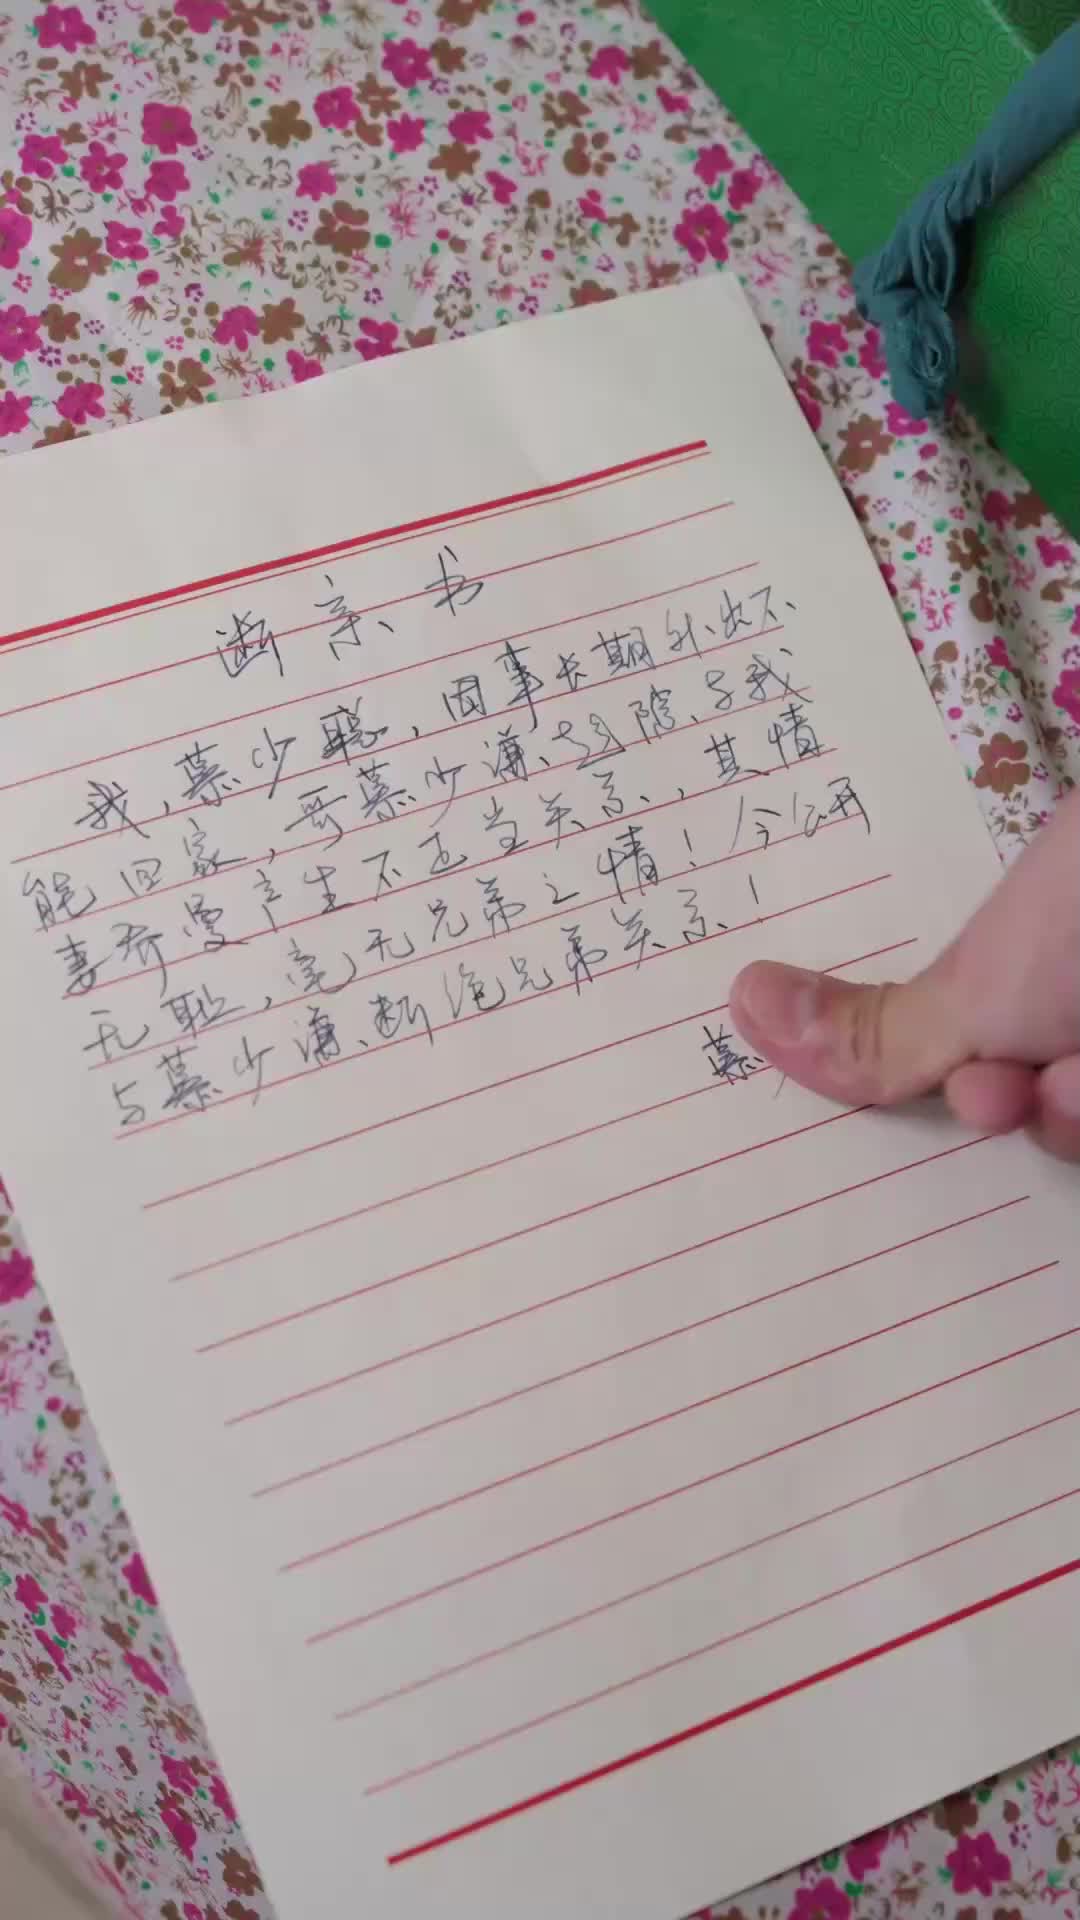 断亲书
我,慕少聪,因事长期外出不
能回家,哥慕少谦、趁隙、与我
妻乔曼产生不正当关系,其情
无耻,毫无兄弟之情!今公开
与慕少谦、断绝兄弟关系!
慕